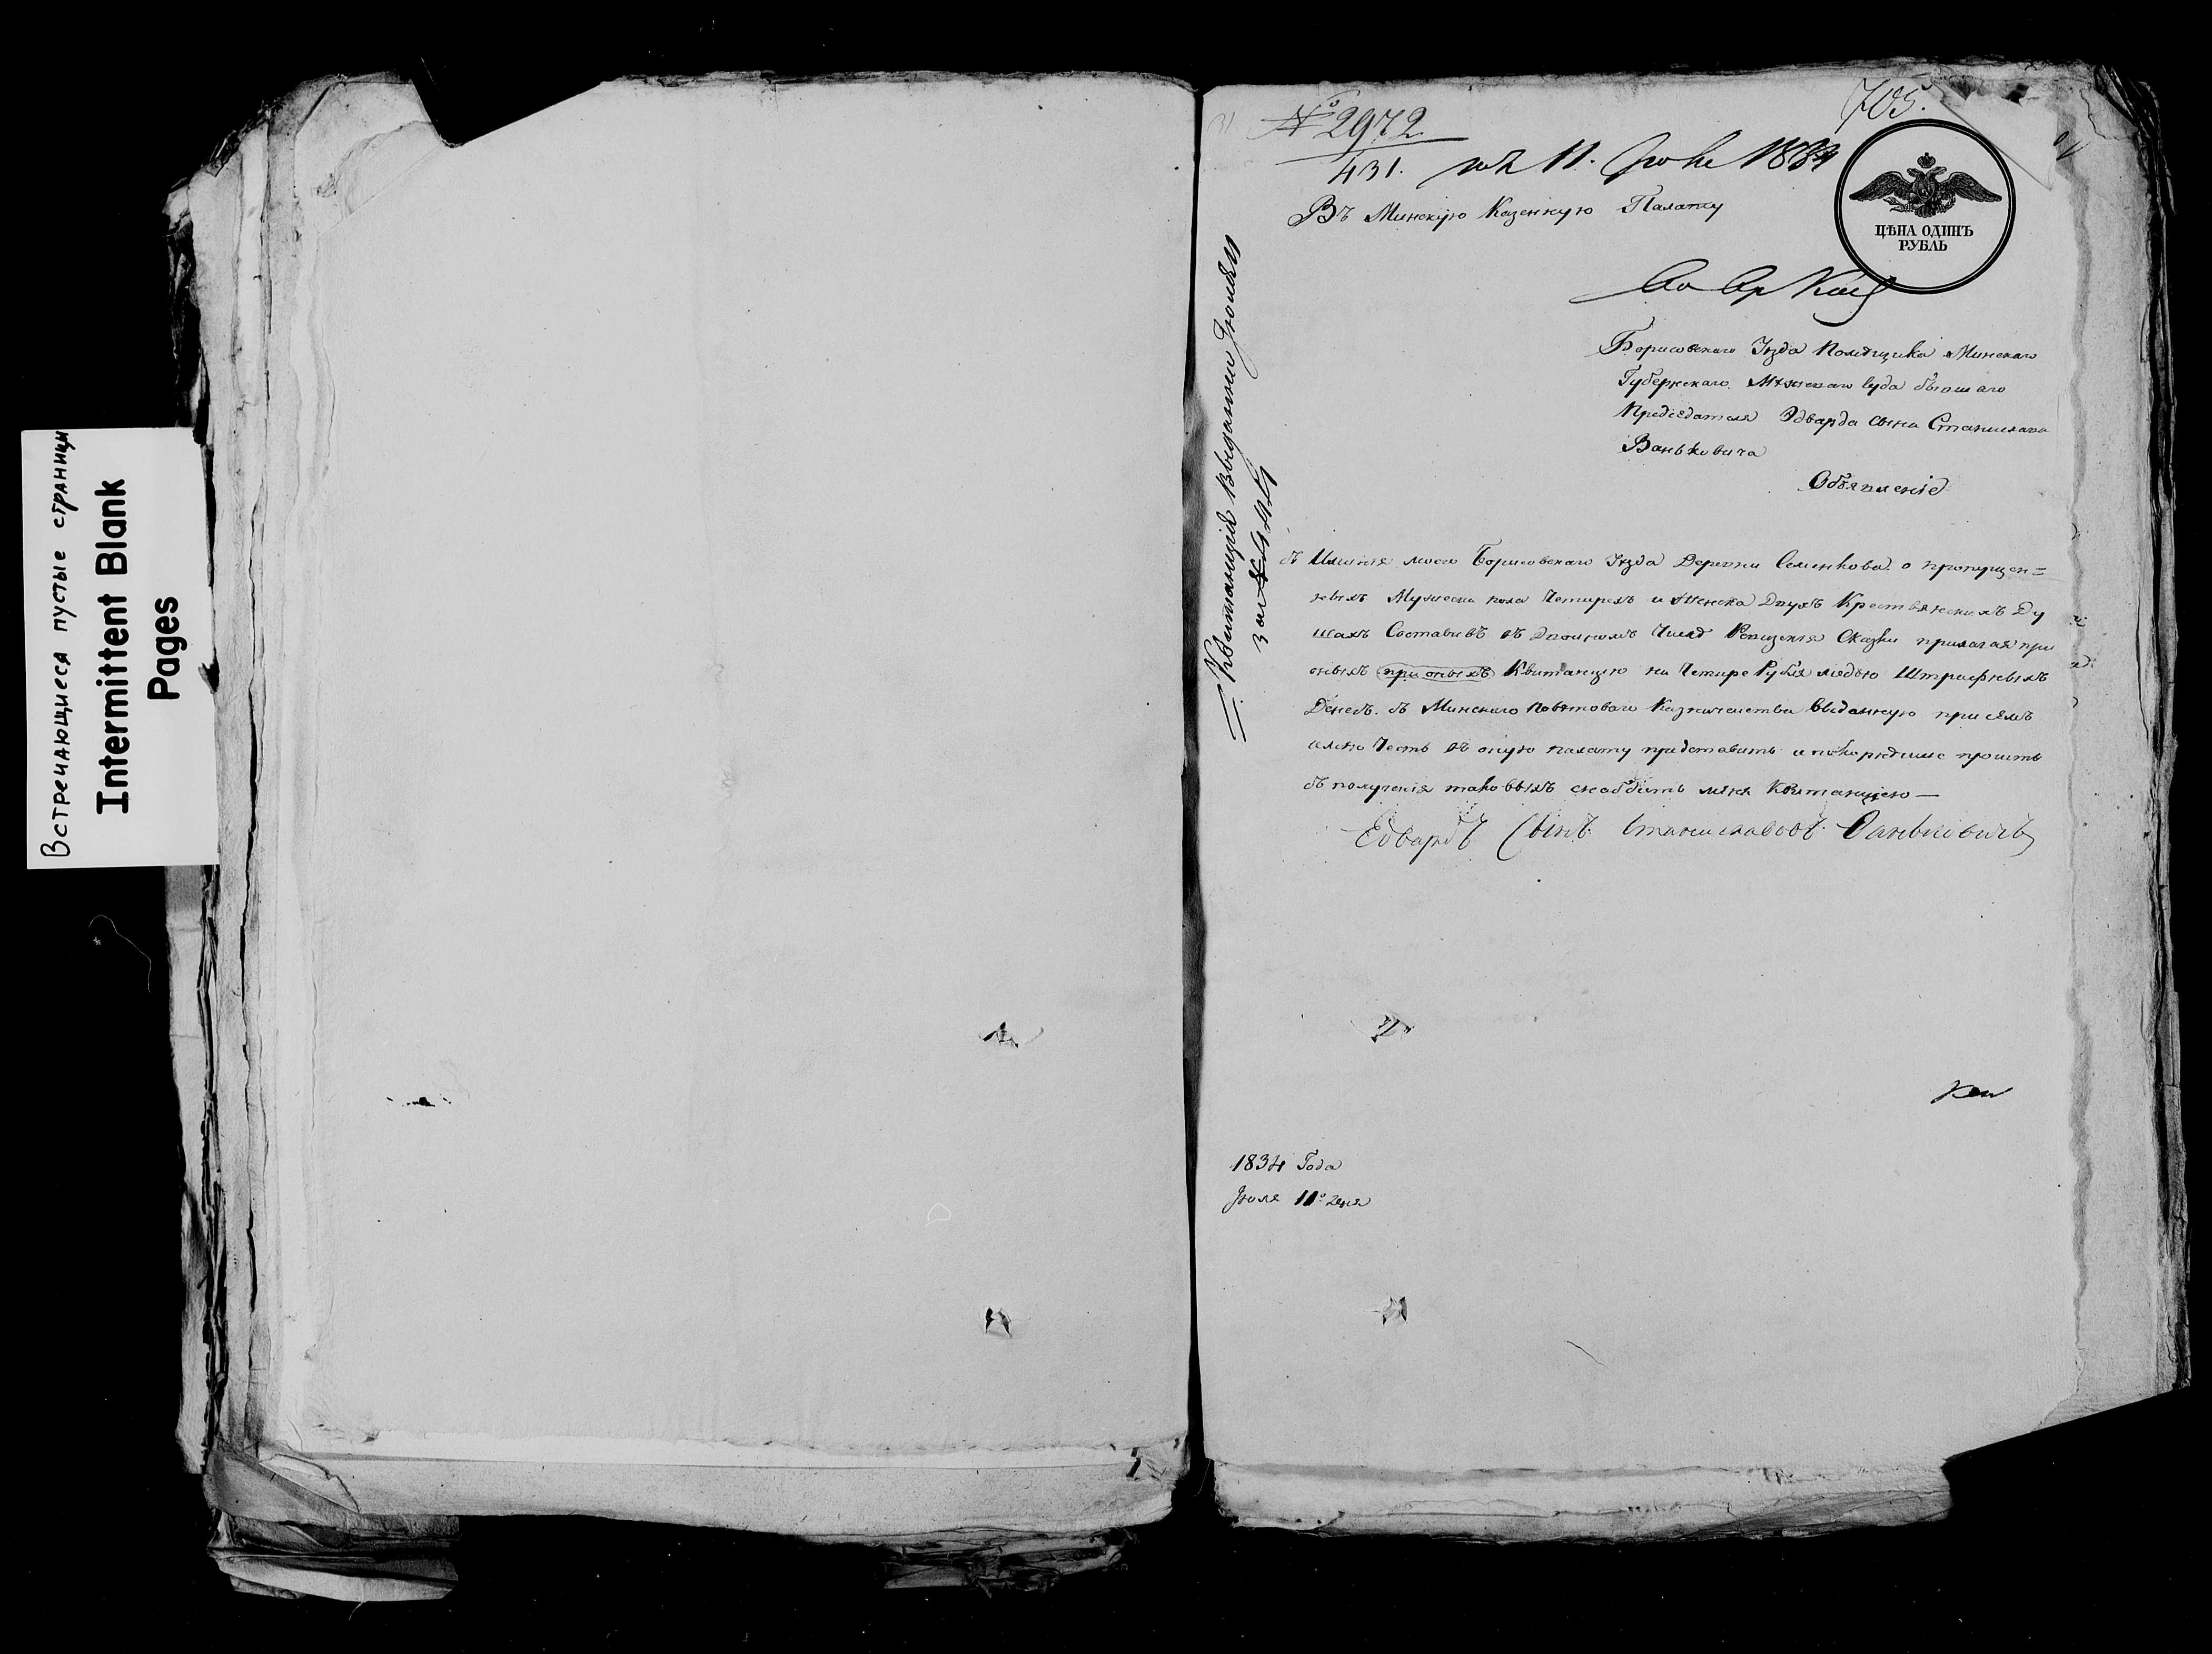 Встречающиеся пустые страницы
Intermittent Blank
Pages
705.
№ 2972
431. 11. 1834
ЦѢНА ОДИНЪ
РУБЛЬ
Въ Минскую Казенную Палату
Борисовскаго Уѣзда Помѣщика Минскаго
Губернскаго Суда бывшаго
Председателя Эдварда сына Станислава
Ваньковича
Объявленіе
Квитанція выдана Іюля 11
за № 444
съ Имѣнія моего Борисовскаго Уѣзда Деревни Семенкова о пропущен=
ныхъ Мужеска пола Четырехъ и Женска Двухъ Крестьянскихъ Ду
шахъ Составивъ въ Числѣ Ревизскія Сказки прилагая при
оныхъ при оныхъ Квитанцію на Четыре Рубля медью Штрафныхъ
Денегъ. съ Минскаго Повѣтоваго Казначейства выданную при семъ
имею Честь въ оную палату представить и покорнѣйше просить
въ полученіи таковыхъ снабдить меня Квитанціею —
Едвардъ Сынъ Станиславовъ Ваньковичъ
1834 Года
Іюля 11º дня